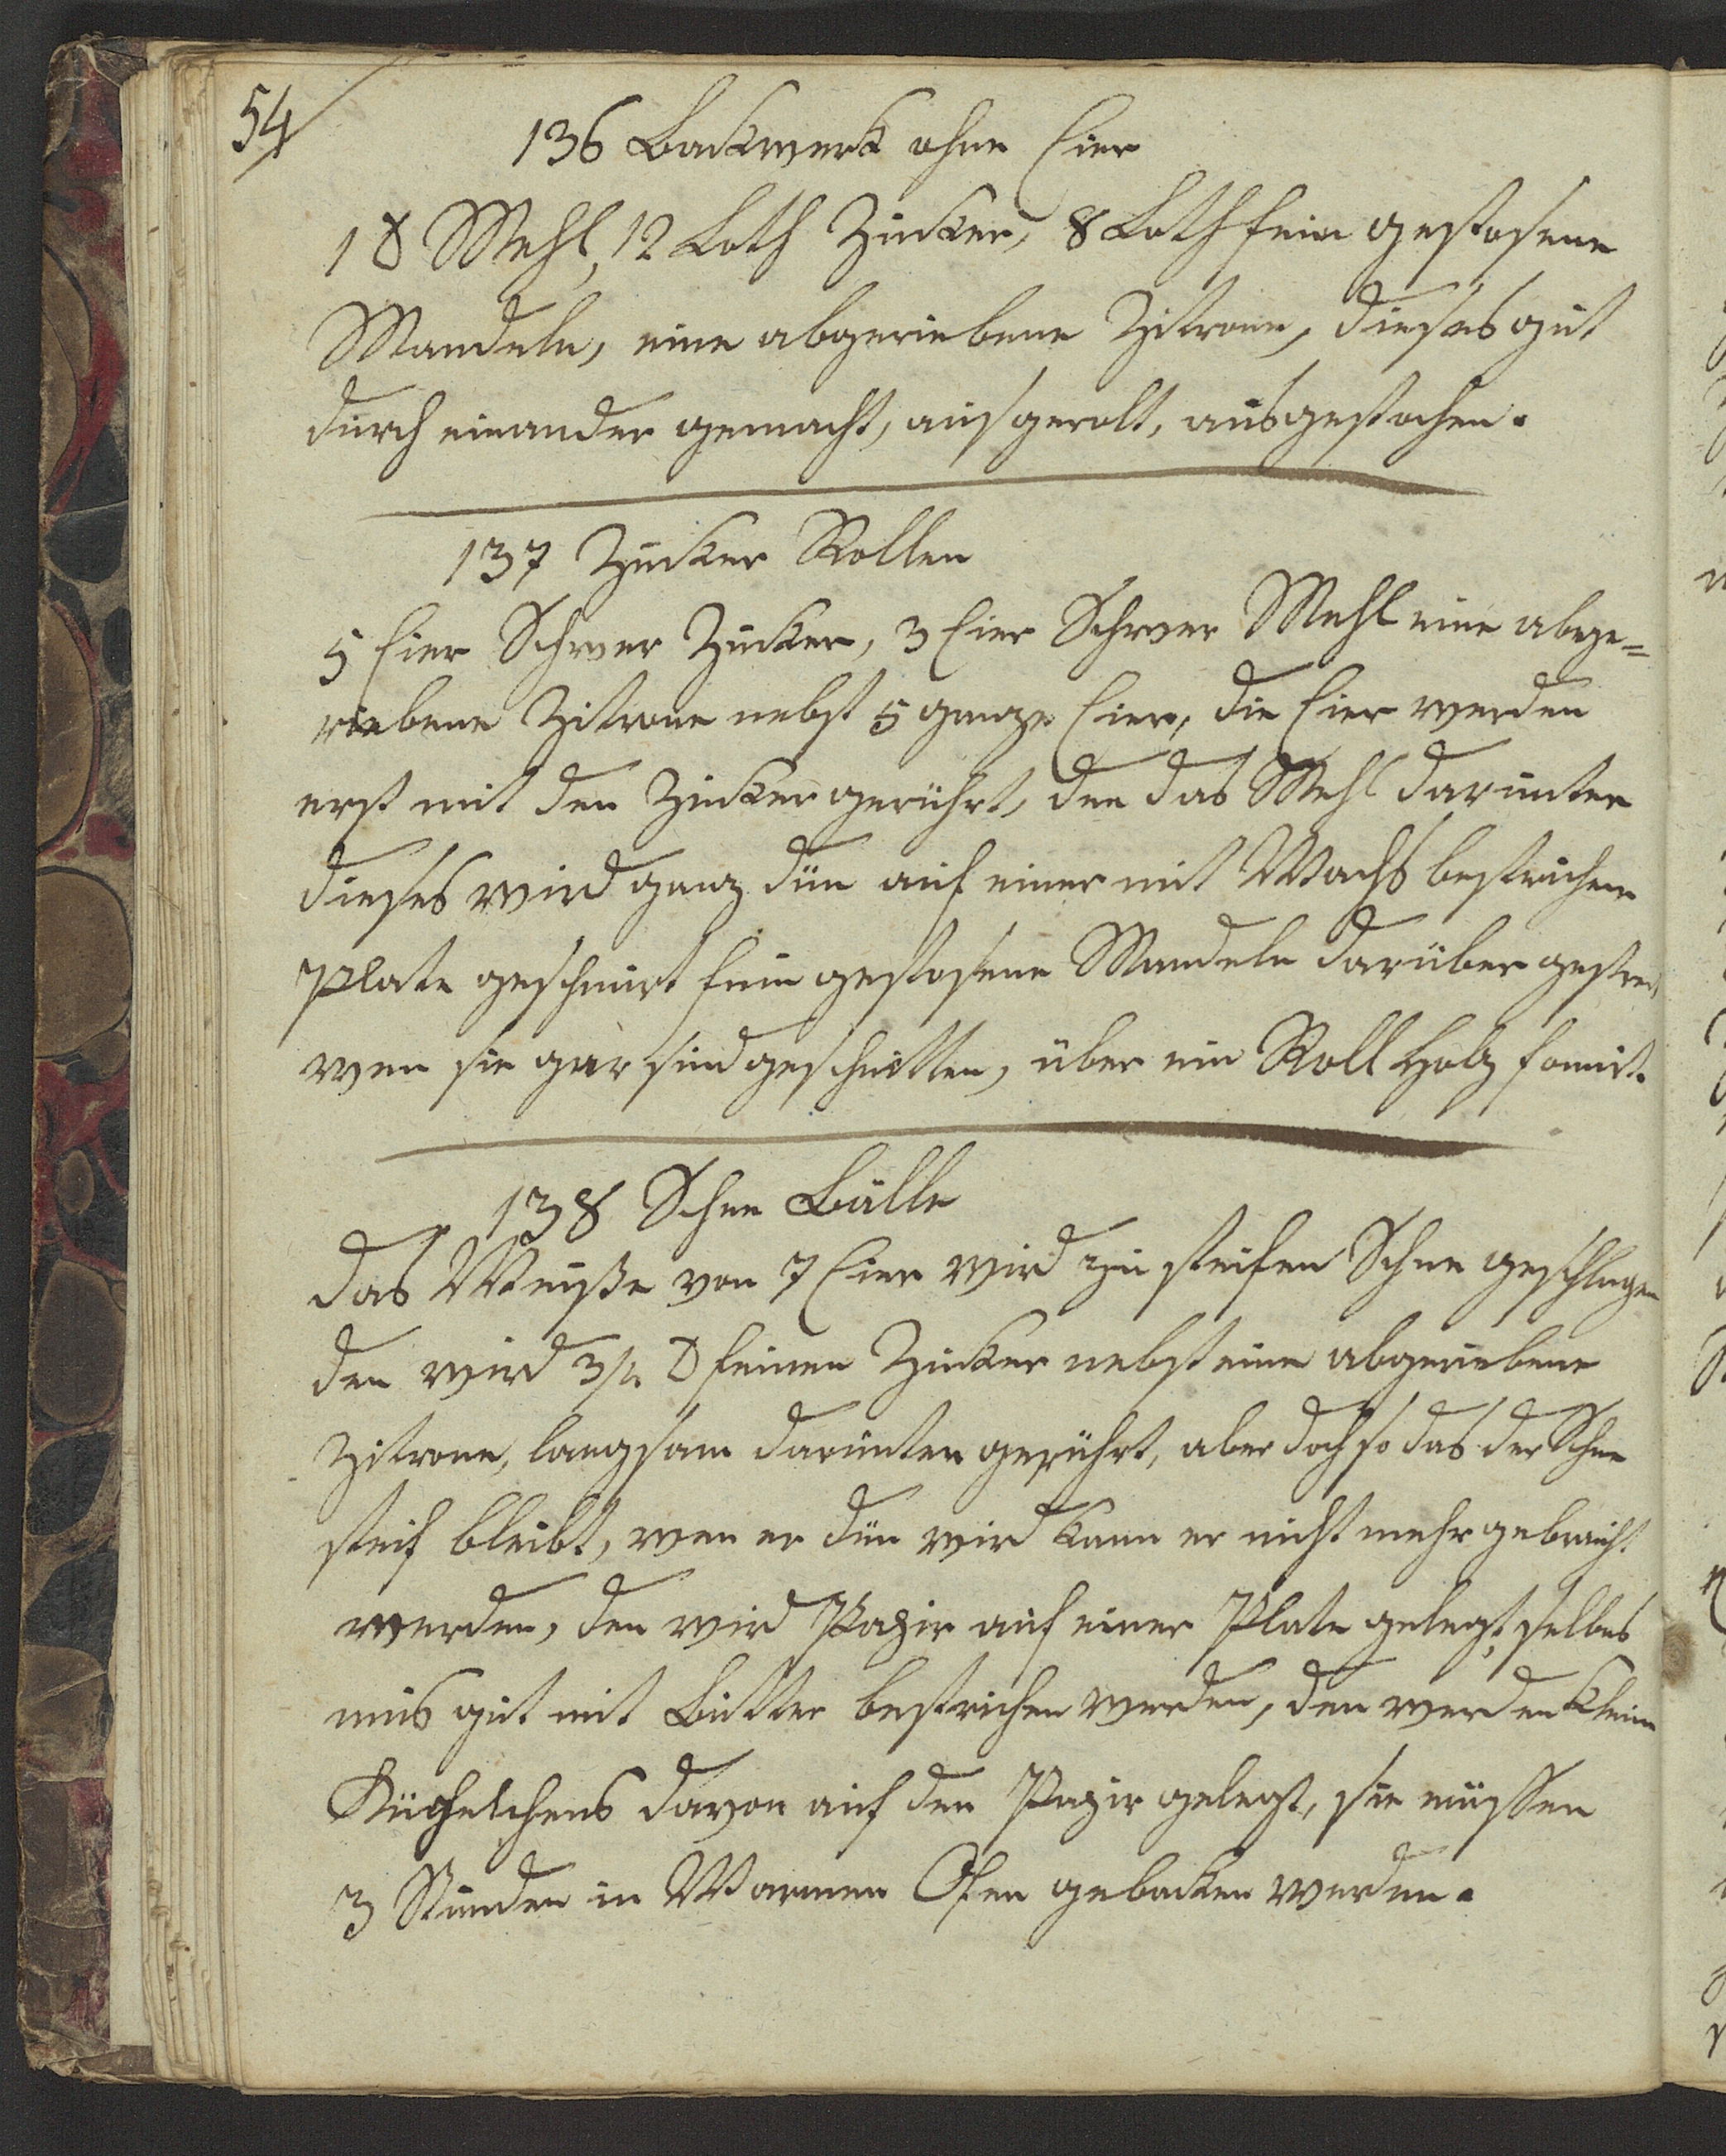 54
136 Backwerk ohne Eier
1 ℔ Mehl, 12 Loth Zucker, 8 Loth fein gestosene
Mandeln, eine abgeriebene Zitrone, dieses gut
durch einander gemacht, ausgerolt, ausgestochen.
137 Zucker Rollen
5 Eier Schwer Zucker, 3 Eier Schwer Mehl eine abge=
riebene Zitrone nebst 5 ganze Eier, die Eier werden
erst mit den Zucker gerührt, den das Mehl darunter
dieses wird ganz dün auf einer mit Wachs bestrichen
Plate geschmirt fein gestosene Mandeln darüber gestreut
wen sie gar sind geschnitten, über ein Roll Holz fomirt.
138 Schne Bälle
Das Weiße von 7 Eier wird zu steifen Schne geschlagen
den wird 3/4 ℔ feinen Zucker nebst eine abgeriebene
Zitrone, langsam darunter gerührt, aber doch so das der Schne
steif bleibt, wen er dün wird kann er nicht mehr gebraucht
werden, den wird Papir auf einer Plate gelegt, selbes
mus gut mit Butter bestrichen werden, den werden kleine
Kügelchens davon auf den Papir gelegt, sie müssen
3 Stunden in Warmen Ofen gebacken werden.